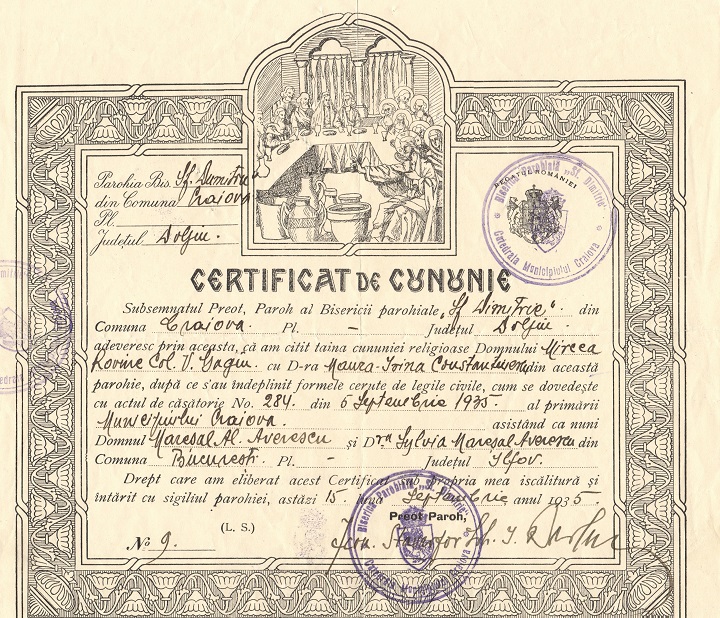 Parohia Bis. Sf. Dumitru
din Comuna Craiova
Pl.
Județul Dolju.
REGATUL ROMANIEI
Biserica Parohială „St. Dimitrie"
Catedrala Municipiului Craiova
CERTIFICAT DE CUNUNIE
Subsemnatul Preot, Paroh al Bisericii parohiale „Sf Dimitrie". din
Comuna Craiova. Pl. – Județul Dolju.
adeveresc prin aceasta, că am citit taina cununiei religioase Domnului Mircea
Rovine Col. V. cu D-ra Constantinescu din această
parohie, după ce s'au îndeplinit formele cerute de legile civile, cum se dovedește
cu actul de căsătorie No. 284. din 5 Septembrie 1935. al primării
Municipiului Craiova. asistând ca nuni
Domnul Mareșal Al. Averescu și D-na Sylvia Mareșal Averescu din
Comuna București. Pl. – Județul Ilfov.
Drept care am eliberat acest Certificat sub propria mea iscălitură și
întărit cu sigiliul parohiei, astăzi 15 luna Septembrie anul 1935.
Biserica Parohială „St. Dimitrie"
Catedrala Municipiului Craiova
(L. S.)
Preot Paroh,
No 9.